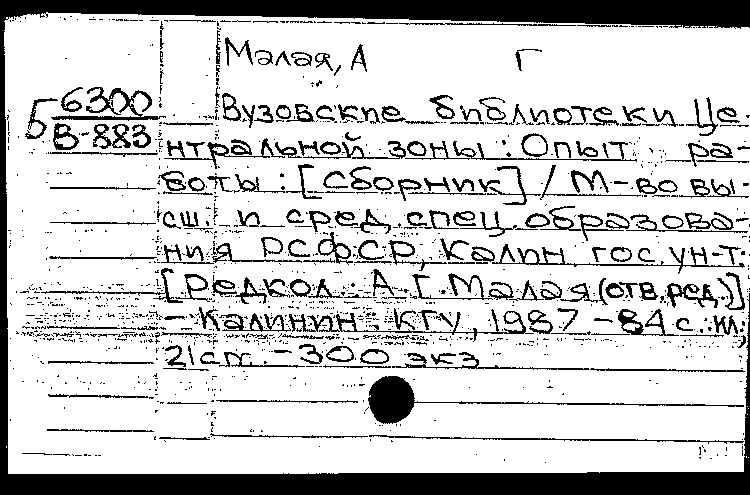 Малая, А Г
Б 6300
В-883
Вузовские библиотеки Це-
нтральной зоны : Опыт ра-
боты : [Сборник] / М-во вы-
сш. и сред. спец. образова-
ния РСФСР, Калин. гос. ун-т.
[Редкол.: А. Г. Малая (отв. ред.)]
– Калинин : КГУ, 1987. – 84 с. : ил.
21 см. – 300 экз.